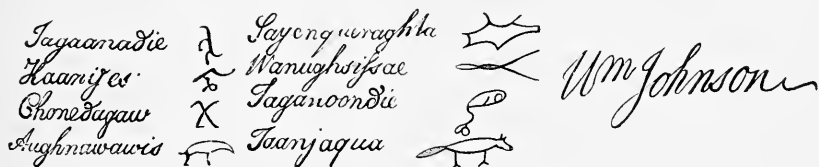 Tagaanadie
Kaanijes
Chonedagaw
Aughnawawis
Sayenqueraghta
Wanughsifsae
Taganoondie
Taanjaqua
Wm Johnson